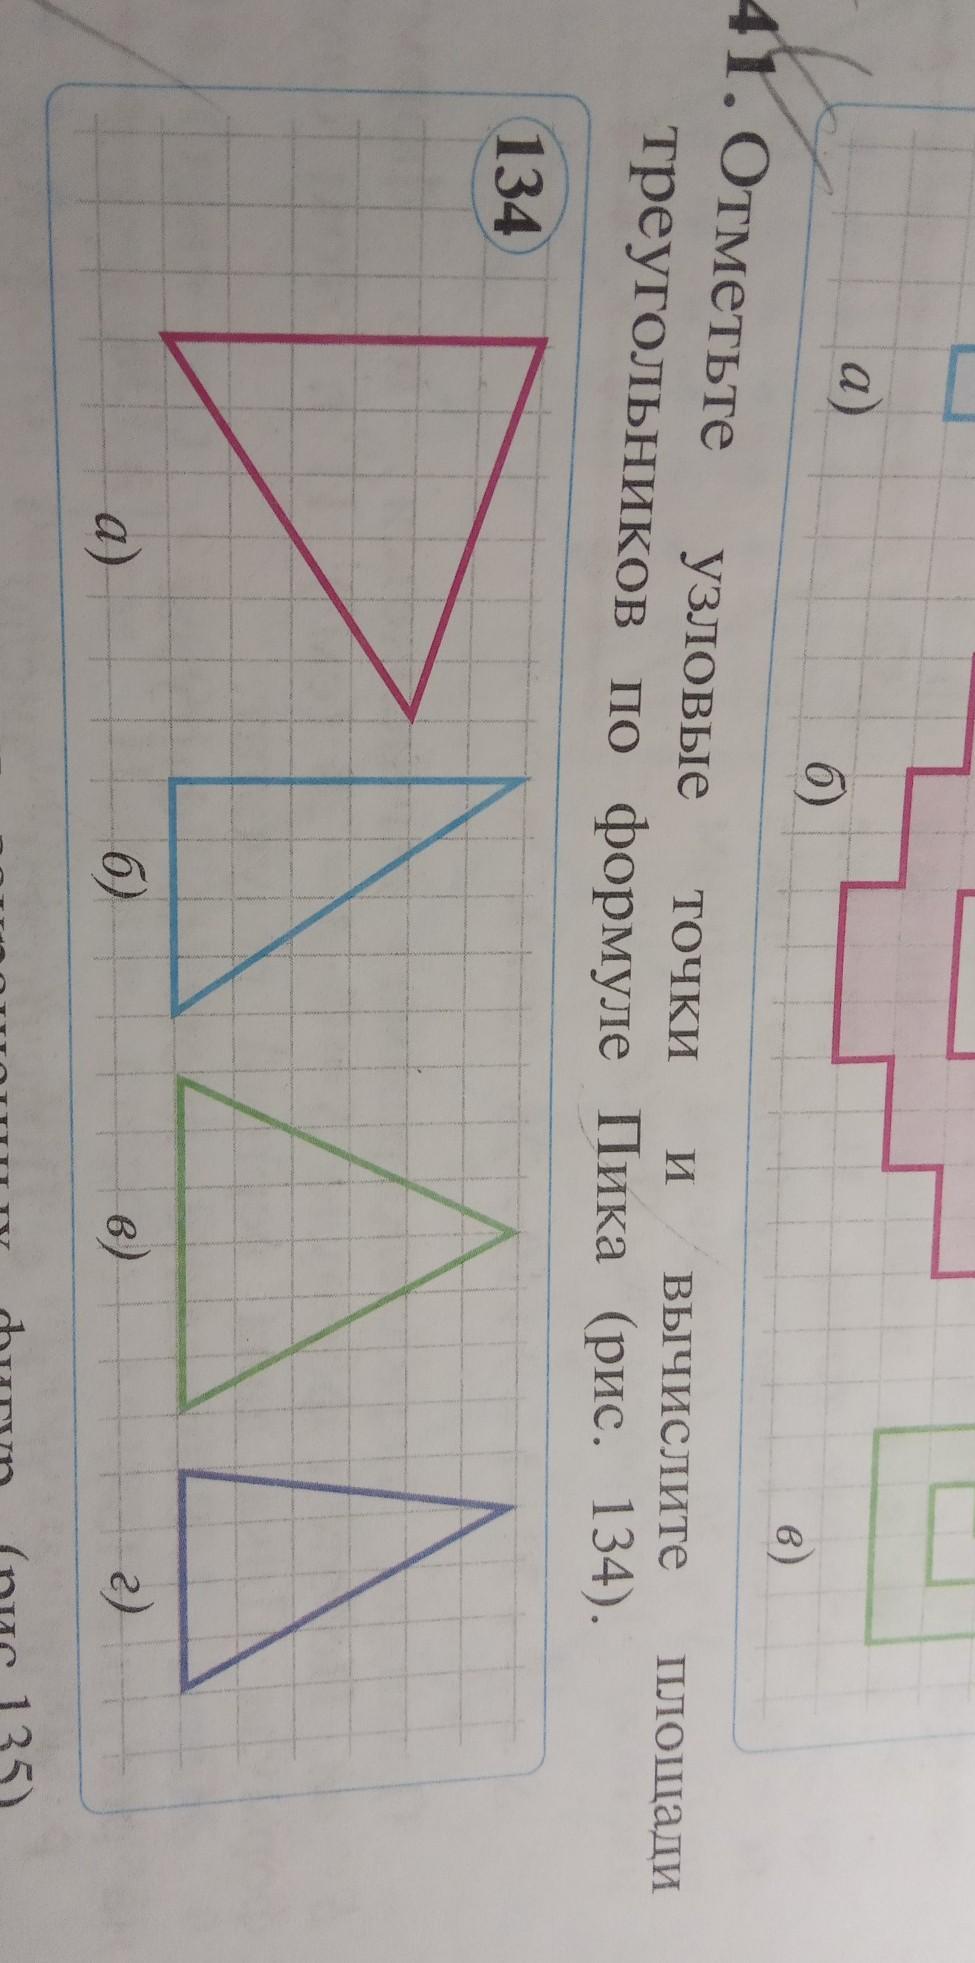 а) б) в)
41. Отметьте узловые точки и вычислите площади
треугольников по формуле Пика (рис. 134).
134
а) б) в) г)
фигур (рис 135)